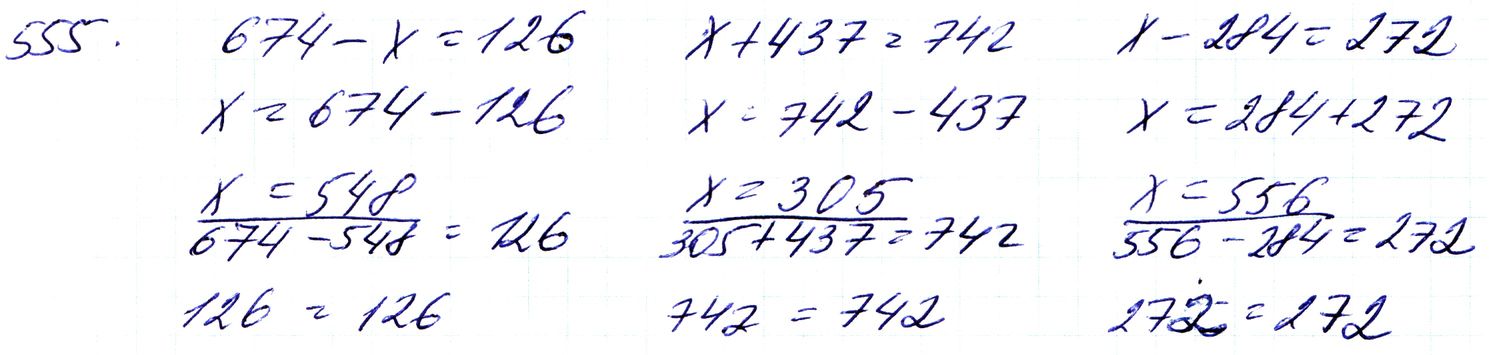 555. 674 - x = 126 x + 437 = 742 x - 284 = 272
x = 674 - 126 x = 742 - 437 x = 284 + 272
x = 548 x = 305 x = 556
674 - 548 = 126 305 + 437 = 742 556 - 284 = 272
126 = 126 742 = 742 272 = 272